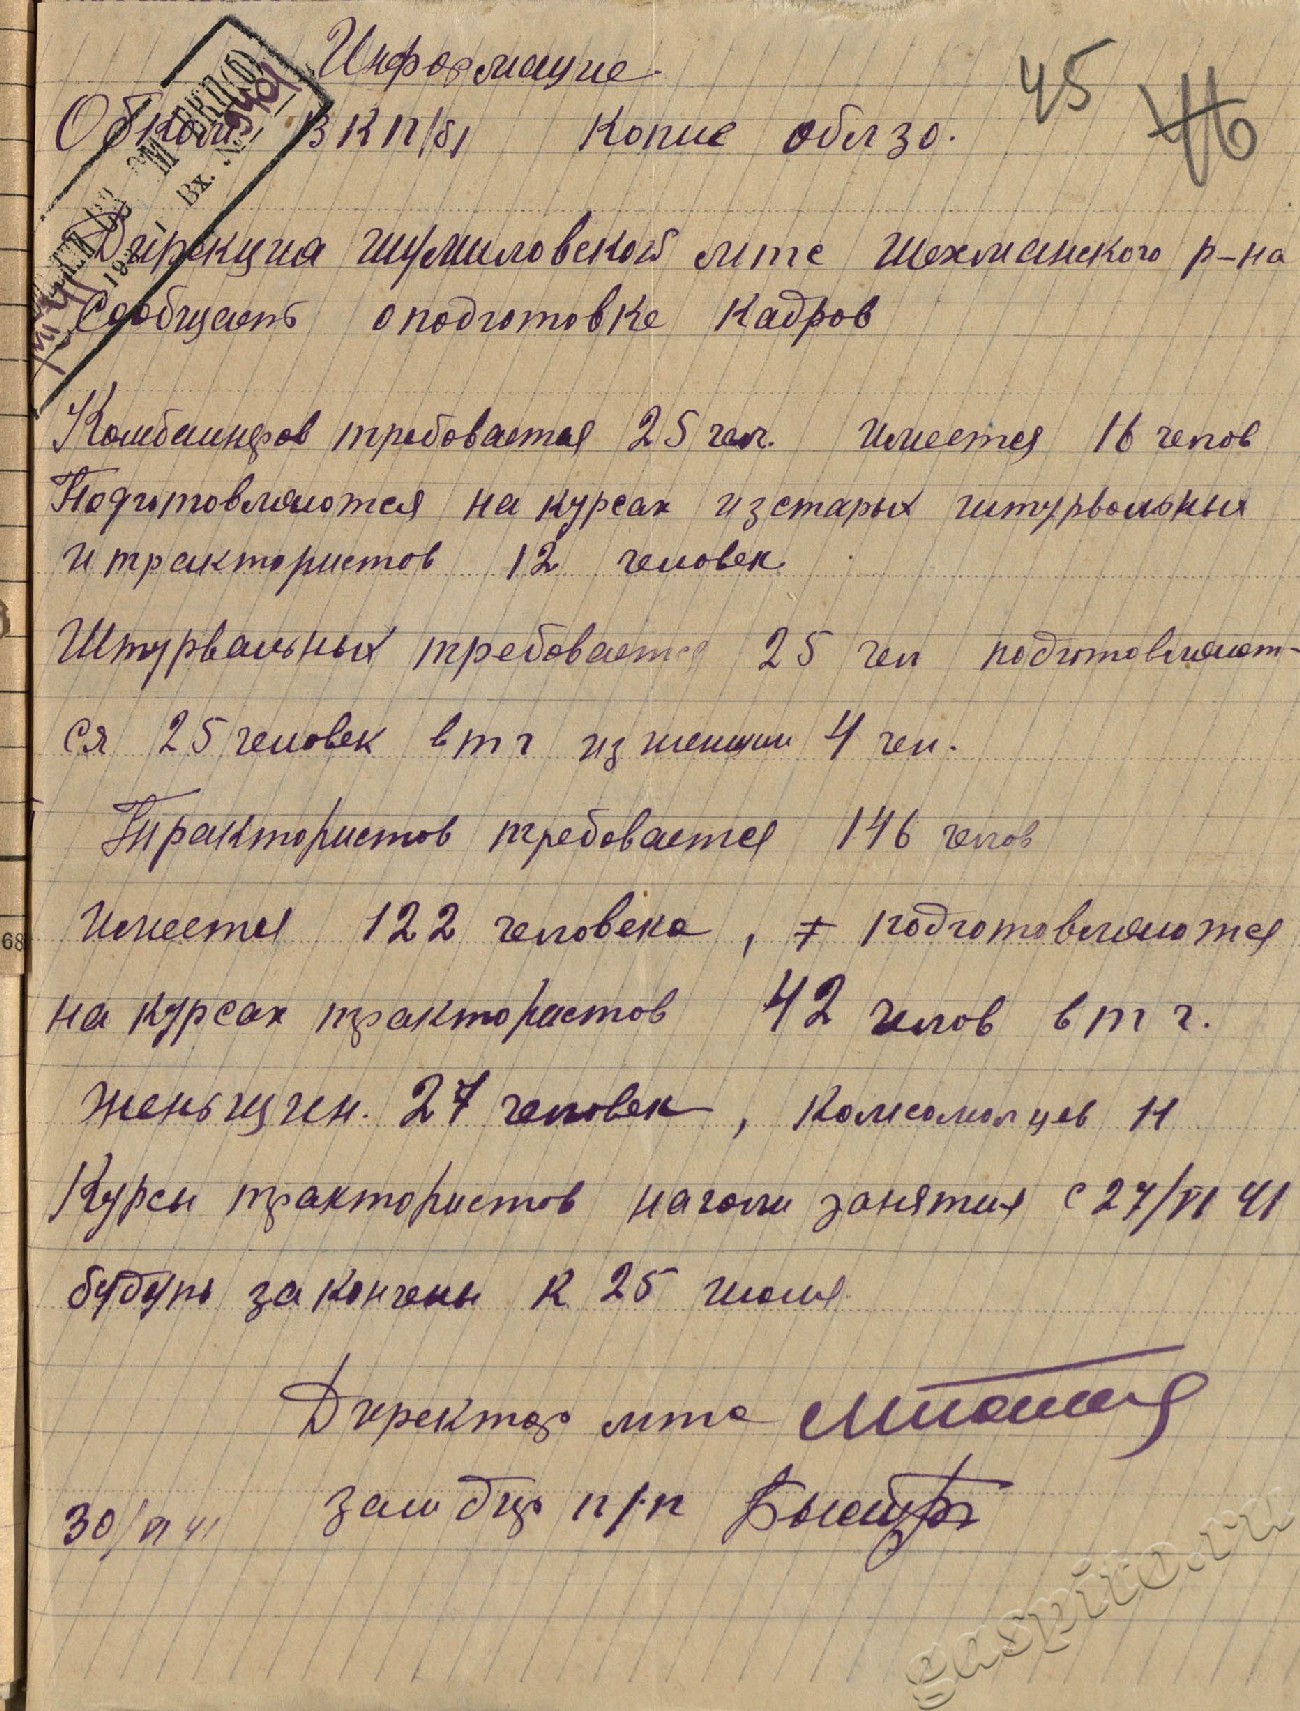 Информацие
45 46
Обком ВКП/б/ Копие облзо.
М ВКП(б)
Вх. №
Дирекциа Шумиловской мтс Шехманского р-на
Сообщаеть оподготовке кадров
Комбаинфов требоваетея 25 чел. Имеется 16 челов
Подготовляются на курсах изстарых штурвальных
и трактористов 12 человек.
Штурвальных требовается 25 чел подготовляют-
ся 25 человек в т ч из женщин 4 чел.
Трактористов требовается 146 челов
Имеется 122 человека, подготовляются
на курсах трактористов 42 челов в т ч.
женьщин. 27 человек, комсомолцев 11
Курсы трактористов начали занятия с 27/VI 41
будуть закончены к 25 июля.
Директор мтс
зам дир п/п
30/VI 41
68
gaspito.ru